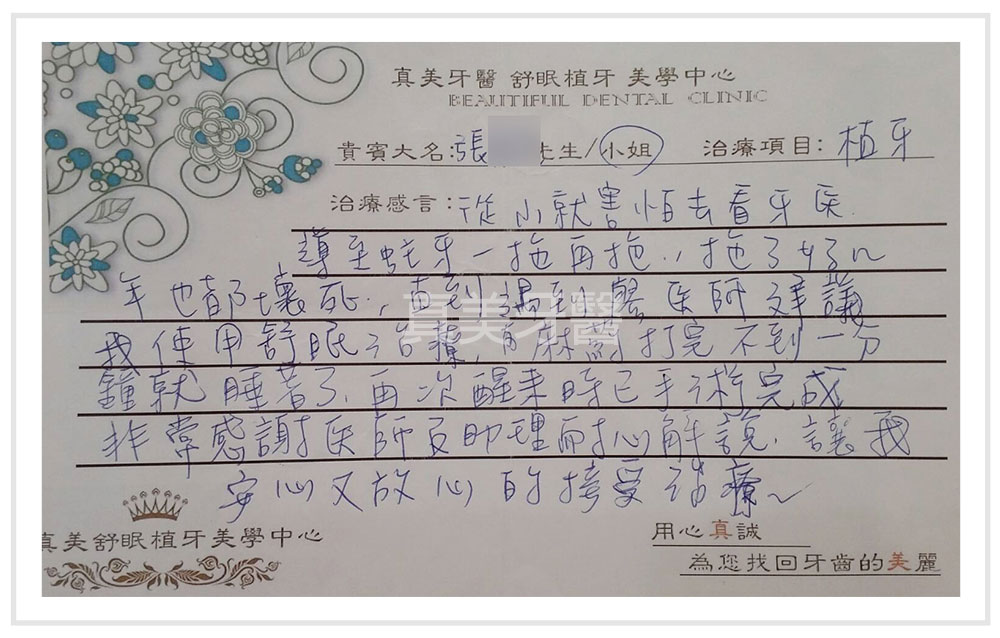 真美牙醫 舒眠植牙 美學中心
BEAUTIFUL DENTAL CLINIC
貴賓大名:張 先生/小姐 治療項目:植牙
治療感言:從小就害怕去看牙医
導至蛀牙一拖再拖,拖了好几
年也都壞死,直到遇到醫医師建議
我使用舒眠治療,有麻藥打完不到一分
鐘就睡著了,再次醒来時已手術完成
非常感謝医師及助理而扌心解說,讓我
安心又放心的接受治療~
真美牙醫
真美舒眠植牙美學中心
用心真誠
為您找回牙齒的美麗